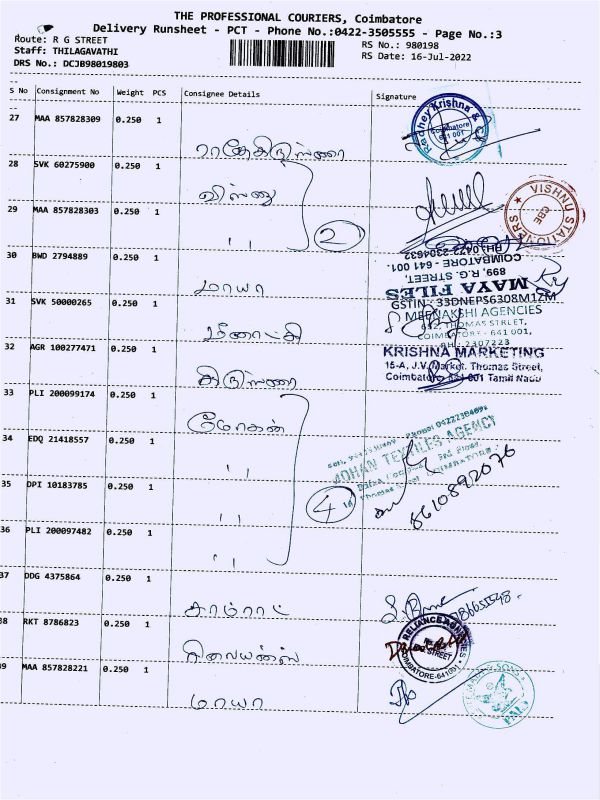 THE PROFESSIONAL COURIERS, Coimbatore
Delivery Runsheet - PCT - Phone No.:0422-3505555 - Page No.:3
Route: R G STREET
Staff: THILAGAVATHI
DRS No.: DCJB98019803
RS No.: 980198
RS Date: 16-Jul-2022
S No Consignment No Weight PCS Consignee Details Signature
27 MAA 857828309 0.250 1
ராதேகிருஸ்ணா
Radhey Krishna & Co
Coimbatore
641 001
28 SVK 60275900 0.250 1
விஸ்ணு
29 MAA 857828303 0.250 1
,, 2
VISHNU STATIONERS
CBE
30 BWD 2794889 0.250 1
மாயா
MAYA FILES
899, R.G. STREET,
COIMBATORE - 641 001.
PH: 0422-2304632
31 SVK 50000265 0.250 1
மீனாட்சி
GSTIN : 33DNEPS6308M1ZM
MEENAKSHI AGENCIES
THOMAS STREET,
COIMBATORE - 641 001,
PH: 2307223
32 AGR 100277471 0.250 1
கிருஸ்ணா
KRISHNA MARKETING
15-A, J.V. Market, Thomas Street,
Coimbatore 641 001 Tamil Nadu
33 PLI 200099174 0.250 1
மோகன்
34 EDQ 21418557 0.250 1
,,
MOHAN TEXTILES AGENCY
Thomas Street COIMBATORE
35 DPI 10183785 0.250 1
,, 4
8610892076
36 PLI 200097482 0.250 1
,,
37 DDG 4375864 0.250 1
சாம்ராட்
38 RKT 8786823 0.250 1
ரிலையன்ஸ்
RELIANCE AGENCIES
STREET
COIMBATORE-641001
39 MAA 857828221 0.250 1
மாயா